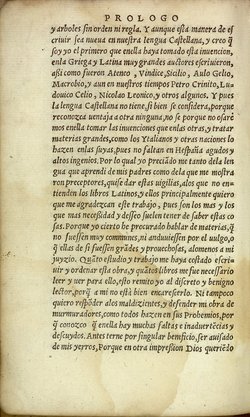 PROLOGO
y arboles sin orden ni regla. Y aunque esta manera de es
criuir sea nueua en nuestra lengua Castellana, y creo q̃
soy yo el primero que enella haya tomado esta inuencion,
enla Griega y Latina muy grandes auctores escriuieron,
assi como fueron Ateneo, Vindice, Sicilio, Aulo Gelio,
Macrobio, y aun en nuestros tiempos Petro Crinito, Lu
douico Celio, Nicolao Leonico y otros algunos. Y pues
la lengua Castellana no tiene, si bien se considera, porque
reconozca ventaja a otra ninguna, no se porque no osaré
mos enella tomar las inuenciones que enlas otras, y tratar
materias grandes, como los Ytalianos y otras naciones lo
hazen enlas suyas, pues no faltan en Hespaña agudos y
altos ingenios. Por lo qual yo preciãdo me tanto dela len
gua que aprendi de mis padres como dela que me mostra
ron preceptores, quise dar estas uigilias, alos que no en-
tienden los libros Latinos, y ellos principalmente quiero
que me agradezcan este trabajo, pues son los mas y los
que mas necessidad y desseo suelen tener de saber estas co
sas. Porque yo cierto he procurado hablar de materias, q̃
no fuessen muy communes, ni anduuiessen por el uulgo, o
q̃ ellas de si fuessen grãdes y prouechosas, alomenos a mi
juyzio. Quãto estudio y trabajo me haya costado escri-
uir y ordenar esta obra, y quãtos libros me fue necessario
leer y uer para ello, esto remito yo al discreto y benigno
lector, porq̃ a mi no está bien encarescerlo. Ni tampoco
quiero respõder alos maldizientes, y defender mi obra de
murmuradores, como todos hazen en sus Prohemios, por
q̃ conozco q̃ enella hay muchas faltas e inaduertẽcias y
descuydos. Antes terne por singular beneficio, ser auisado
de mis yerros, Porque en otra impressiõ Dios queriẽdo